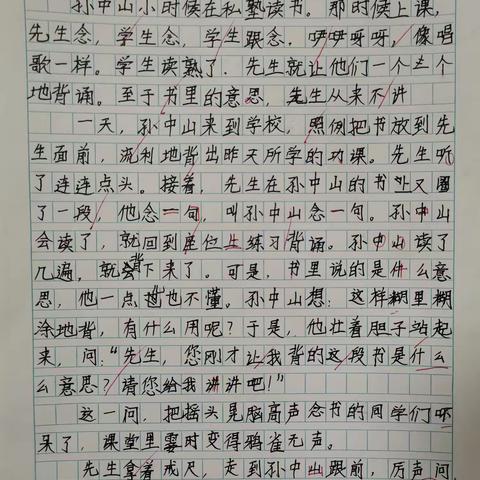 孙中山小时候在私塾读书。那时候上课，
先生念，学生念，学生跟念，咿咿呀呀，像唱
歌一样。学生读熟了，先生就让他们一个一个
地背诵。至于书里的意思，先生从来不讲
一天，孙中山来到学校，照例把书放到先
生面前，流利地背出昨天所学的功课。先生听
了连连点头。接着，先生在孙中山的书上又圈
了一段，他念一句，叫孙中山念一句。孙中山
会读了，就回到座位上练习背诵。孙中山读了
几遍，就背下来了。可是，书里说的是什么意
思，他一点也不懂。孙中山想：这样糊里糊
涂地背，有什么用呢？于是，他壮着胆子站起
来，问：“先生，您刚才让我背的这段书是什么
么意思？请您给我讲讲吧！”
这一问，把摇头晃脑高声念书的同学们吓
呆了，课堂里霎时变得鸦雀无声。
先生拿着戒尺，走到孙中山跟前，厉声问